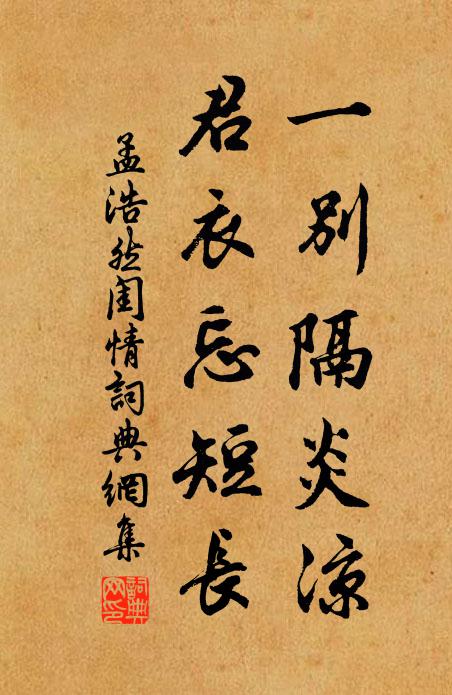 一別隔炎涼
君衣忘短長
孟浩然閨情詞典網集
詞典网印